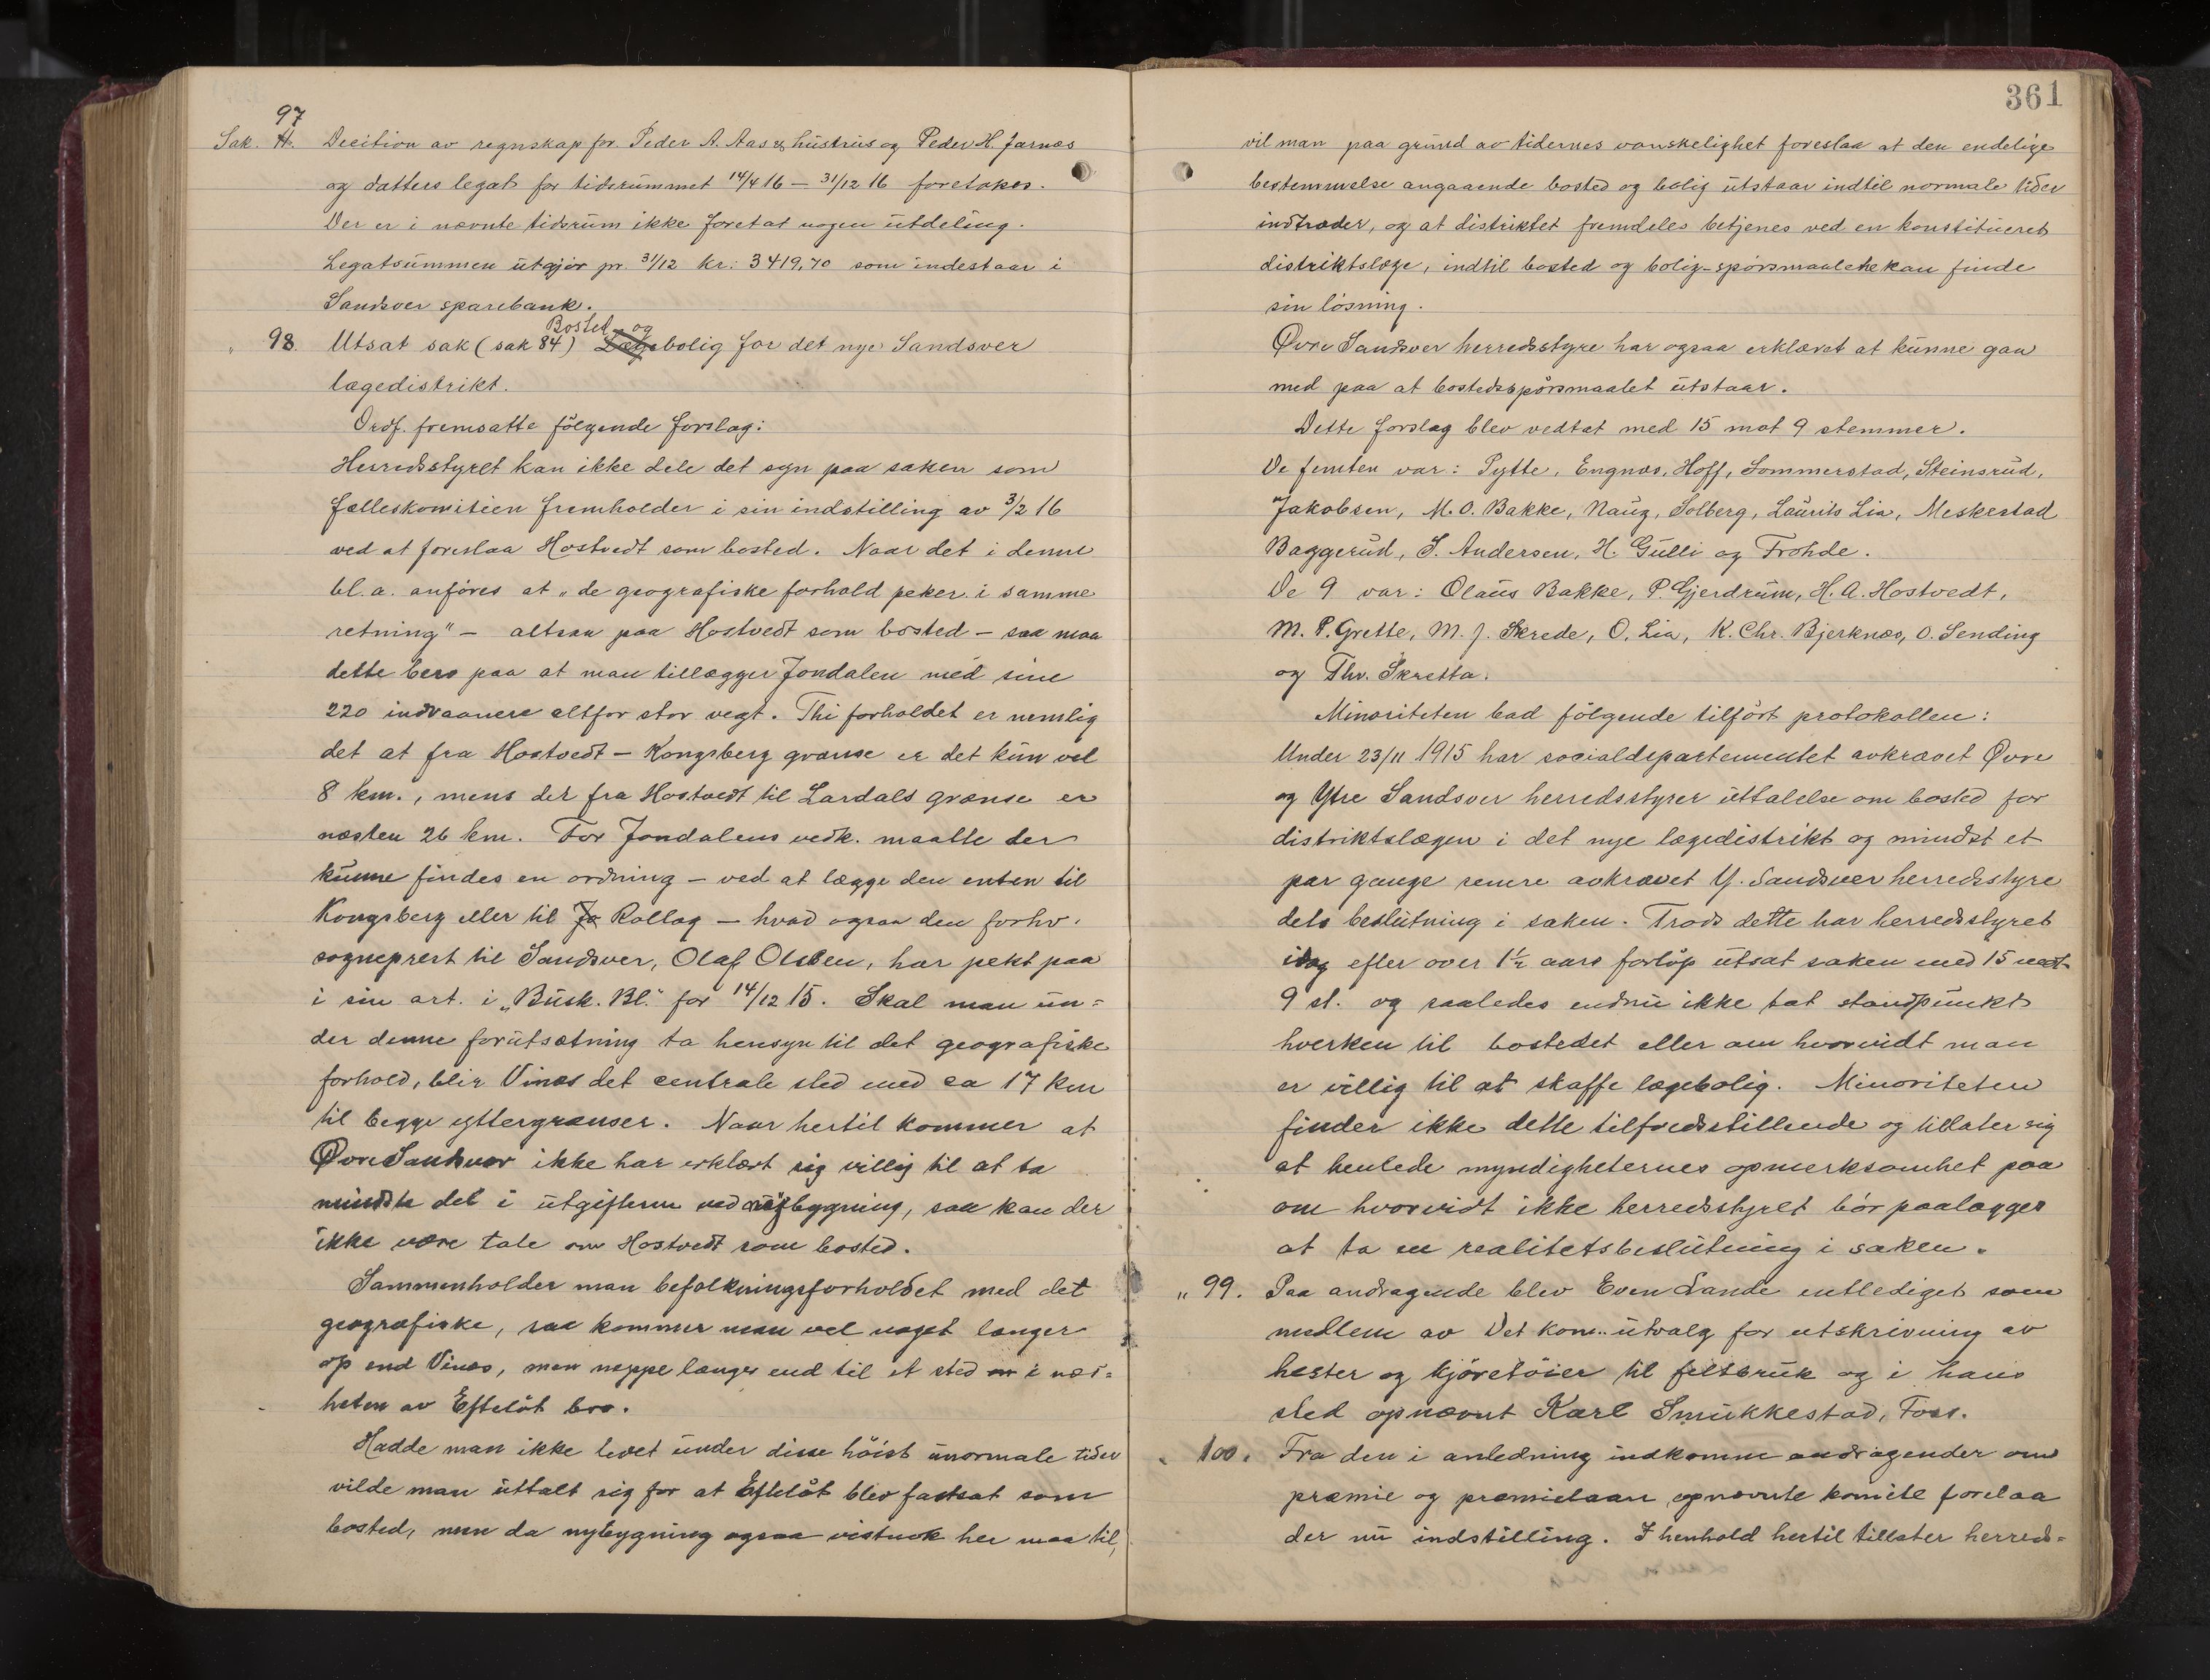 97
Sak. H. Decition av regnskap for Peder A. Aas & hustrus og Peder H. Jarnæs
og datters legat for tidsrummet 14/4 16 – 31/12 16 foretokes.
Der er i nævnte tidsrum ikke foretat nogen utdeling.
Legatsummen utgjör pr. 31/12 kr: 3419,70 som indestaar i
Sandsver sparebank.
Bosted og
" 98. Utsat sak (sak 84) Lægebolig for det nye Sandsver
lægedistrikt.
Ordf. fremsatte fölgende forslag:
Herredsstyret kan ikke dele det syn paa saken som
fælleskomitéen fremholder i sin indstilling av 3/2 16
ved at foreslaa Hostvedt som bosted. Naar det i denne
bl. a. anföres at "de geografiske forhold peker i samme
retning" – altsaa paa Hostvedt som bosted – saa maa
dette bero paa at man tillægger Jondalen med sine
220 indvaanere altfor stor vegt. Thi forholdet er nemlig
det at fra Hostvedt – Kongsberg grænse er det kun vel
8 km., mens det fra Hostvedt til Lardals grænse er
næsten 26 km. For Jondalens vedk. maatte der
kunne findes en ordning – ved at lægge den enten til
Kongsberg eller til Jo Rollag – hvad ogsaa den forhv.
sogneprest til Sandsver, Olaf Olsen, har pekt paa
i sin art. i "Busk. Bl." for 14/12 15. Skal man un=
der denne forutsætning ta hensyn til det geografiske
forhold, blir Vinæs det centrale sted med ca 17 km
til begge yttergrænser. Naar hertil kommer at
Øvre Sandsver ikke har erklært sig villig til at ta
mindste del i utgifterne ved nybygning, saa kan der
ikke være tale om Hostvedt som bosted.
Sammenholder man befolkningsforholdet med det
geografiske, saa kommer man vel noget længer
op end Vinæs, men neppe længer end til et sted i nær=
heten av Efteløt bro.
Hadde man ikke levet under disse höist unormale tider
vilde man uttalt sig for at Efteløt blev fastsat som
bosted, men da nybygning ogsaa vistnok her maa til,
361
vil man paa grund av tidernes vanskelighet foreslaa at den endelige
bestemmelse angaaende bosted og bolig utstaar indtil normale tider
indtræder, og at distriktet fremdeles betjenes ved en konstitueret
distriktslæge, indtil bosted og bolig-spörsmaalene kan finde
sin lösning.
Øvre Sandsver herredsstyre har ogsaa erklæret at kunne gaa
med paa at bostedsspörsmaalet utstaar.
Dette forslag blev vedtat med 15 mot 9 stemmer.
De femten var: Pytte, Engnæs, Hoff, Sommerstad, Steinsrud,
Jakobsen, M. O. Bakke, Naug, Solberg, Laurits Lia, Meskestad
Baggerud, S. Andersen, H. Gulli og Frohde.
De 9 var: Olaus Bakke, P. Gjerdrum, H. A. Hostvedt,
M. P. Grette, M. J. Skrede, O. Lia, K. Chr. Bjerknæs, O. Sending
og Thv. Skretta.
Minoriteten bad fölgende tilfört protokollen:
Under 23/11 1915 har socialdepartementet avkrævet Øvre
og Ytre Sandsver herredsstyrer uttalelse om bosted for
distriktslægen i det nye lægedistrikt og mindst et
par gange senere avkrævet Y. Sandsver herredsstyre
dets beslutning i saken. Trods dette har herredsstyret
idag efter over 1½ aars forlöp utsat saken med 15 mot
9 st. og saaledes endnu ikke tat standpunkt
hverken til bostedet eller om hvorvidt man
er villig til at skaffe lægebolig. Minoriteten
finder ikke dette tilfredsstillende og tillater sig
at henlede myndigheternes opmerksomhet paa
om hvorvidt ikke herredsstyret bör paalægges
at ta en realitetsbeslutning i saken.
" 99. Paa andragende blev Even Lande entlediget som
medlem av Det kom. utvalg for utskrivning av
hester og kjöretöier til feltbruk og i hans
sted opnævnt Karl Smukkestad, Foss.
" 100. Fra den i anledning indkomne andragender om
præmie og præmielaan opnævnte komité forelaa
der nu indstilling. I henhold hertil tillater herreds=